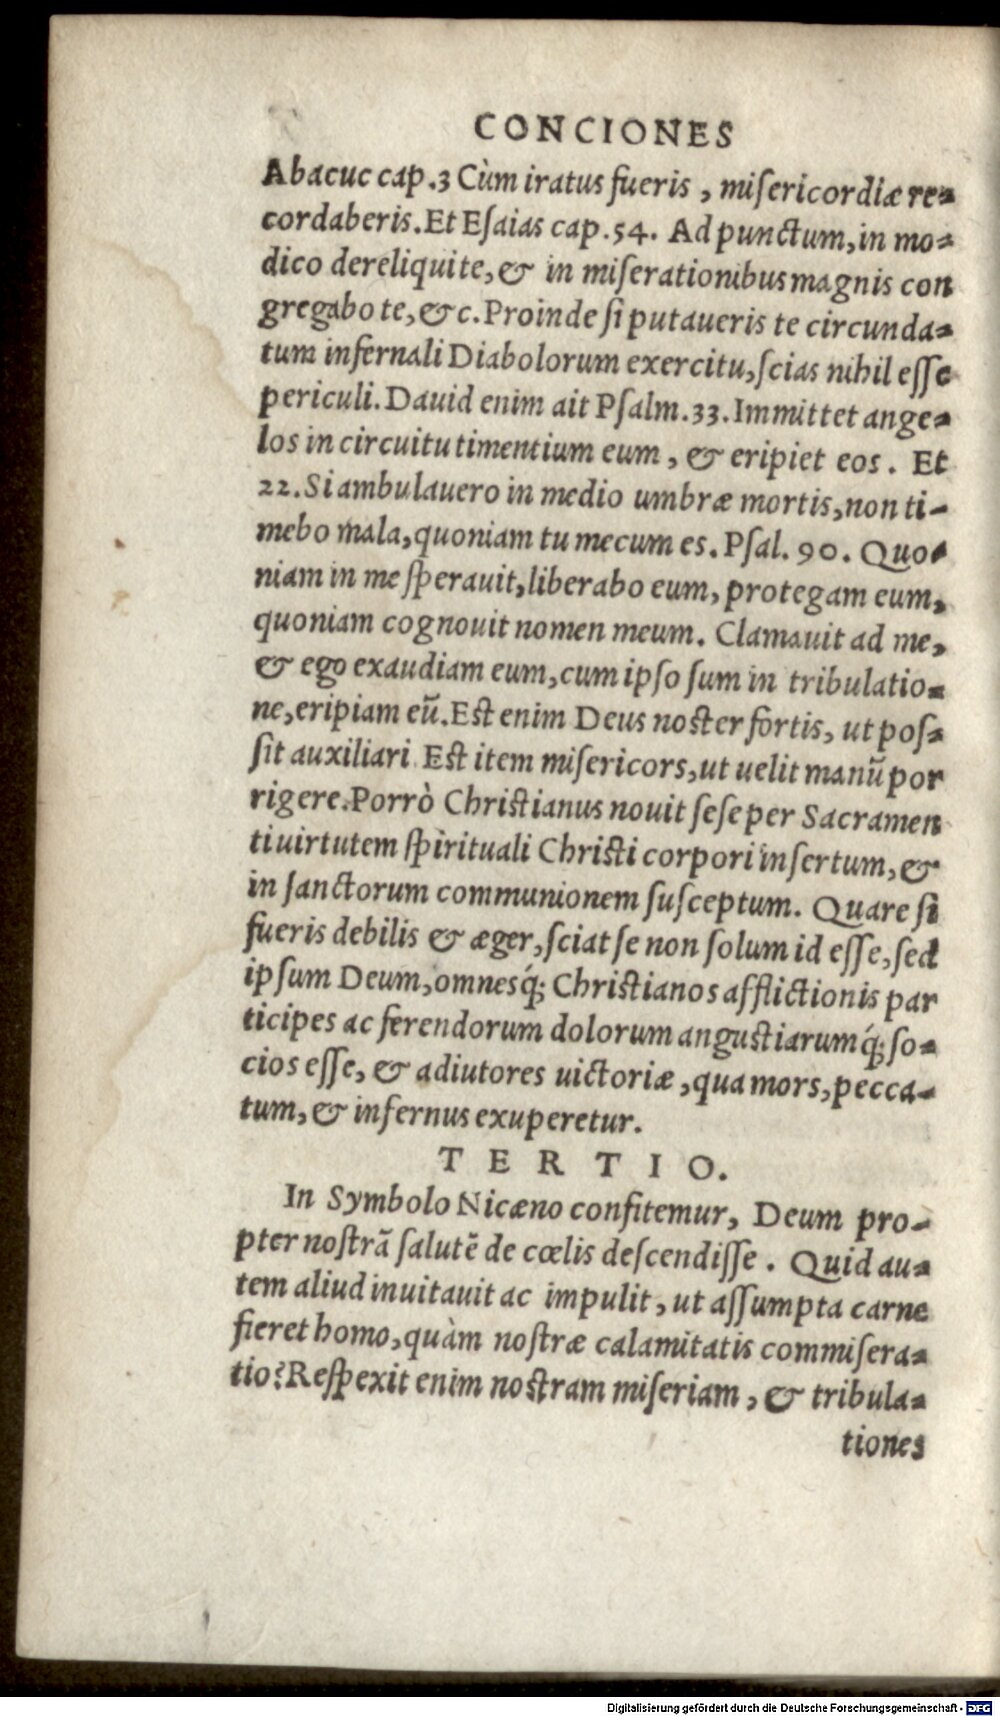 CONCIONES
Abacuc cap.3 Cùm iratus fueris, miſericordiæ re-
cordaberis. Et Eſaias cap.54. Ad punctum, in mo-
dico dereliquite, & in miſerationibus magnis con
gregabo te, &c. Proinde ſi putaueris te circunda-
tum infernali Diabolorum exercitu, ſcias nihil eſſe
periculi. Dauid enim ait Pſalm.33. Immittet ange-
los in circuitu timentium eum, & eripiet eos. Et
22. Si ambulauero in medio umbræ mortis, non ti-
mebo mala, quoniam tu mecum es. Pſal. 90. Quo-
niam in me ſperauit, liberabo eum, protegam eum,
quoniam cognouit nomen meum. Clamauit ad me,
& ego exaudiam eum, cum ipſo ſum in tribulatio-
ne, eripiam eū. Est enim Deus noster fortis, ut poſ-
ſit auxiliari. Est item miſericors, ut uelit manū por
rigere. Porrò Christianus nouit ſeſe per Sacramen
ti uirtutem ſpirituali Christi corpori inſertum, &
in ſanctorum communionem ſuſceptum. Quare ſi
fueris debilis & æger, ſciat ſe non ſolum id eſſe, ſed
ipſum Deum, omnesq́; Christianos afflictionis par
ticipes ac ferendorum dolorum angustiarumq́; ſo-
cios eſſe, & adiutores uictoriæ, qua mors, pecca-
tum, & infernus exuperetur.
TERTIO.
In Symbolo Nicæno confitemur, Deum pro-
pter noſtrã ſalutē de cœlis deſcendiſſe. Quid au-
tem aliud inuitauit ac impulit, ut aſſumpta carne
fieret homo, quàm noſtræ calamitatis commiſera-
tio? Reſpexit enim nostram miſeriam, & tribula-
tiones
Digitalisierung gefördert durch die Deutsche Forschungsgemeinschaft - DFG